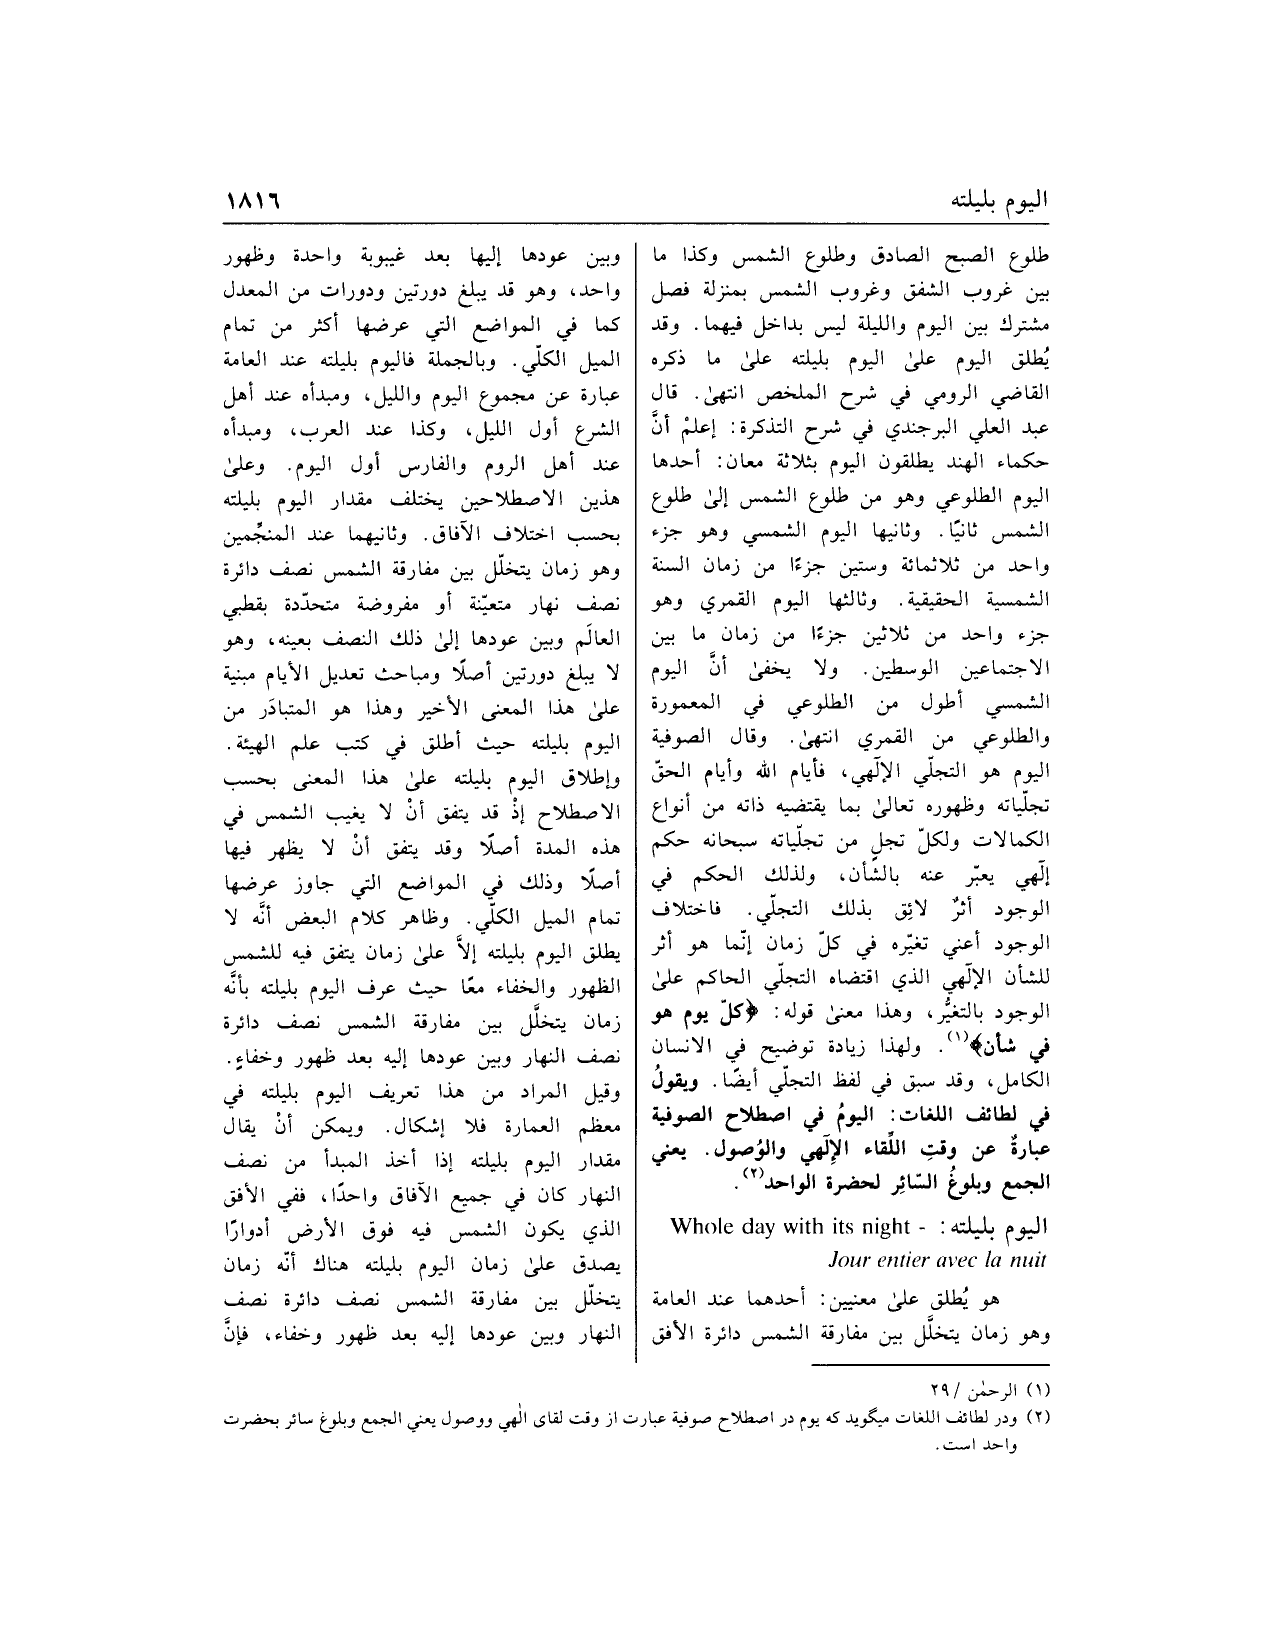 اليوم بليلته
١٨١٦
طلوع الصبح الصادق وطلوع الشمس وكذا ما
بين غروب الشفق وغروب الشمس بمنزلة فصل
مشترك بين اليوم والليلة ليس بداخل فيهما. وقد
يُطلق اليوم علىٰ اليوم بليلته علىٰ ما ذكره
القاضي الرومي في شرح الملخص انتهىٰ. قال
عبد العلي البرجندي في شرح التذكرة: إعلمْ أنَّ
حكماء الهند يطلقون اليوم بثلاثة معان: أحدها
اليوم الطلوعي وهو من طلوع الشمس إلىٰ طلوع
الشمس ثانيًا. وثانيها اليوم الشمسي وهو جزء
واحد من ثلاثمائة وستين جزءًا من زمان السنة
الشمسية الحقيقية. وثالثها اليوم القمري وهو
جزء واحد من ثلاثين جزءًا من زمان ما بين
الاجتماعين الوسطين. ولا يخفىٰ أنَّ اليوم
الشمسي أطول من الطلوعي في المعمورة
والطلوعي من القمري انتهىٰ. وقال الصوفية
اليوم هو التجلّي الإلٓهي، فأيام الله وأيام الحقّ
تجلّياته وظهوره تعالىٰ بما يقتضيه ذاته من أنواع
الكمالات ولكلّ تجلٍ من تجلّياته سبحانه حكم
إلٓهي يعبّر عنه بالشأن، ولذلك الحكم في
الوجود أثرٌ لائق بذلك التجلّي. فاختلاف
الوجود أعني تغيّره في كلّ زمان إنّما هو أثر
للشأن الإلٓهي الذي اقتضاه التجلّي الحاكم علىٰ
الوجود بالتغيُّر، وهذا معنىٰ قوله: ﴿كلّ يوم هو
في شأن﴾(١). ولهذا زيادة توضيح في الانسان
الكامل، وقد سبق في لفظ التجلّي أيضًا. ويقولُ
في لطائف اللغات: اليومُ في اصطلاح الصوفية
عبارةٌ عن وقتِ اللِّقاء الإلٓهي والوُصول. يعني
الجمع وبلوغُ السّائِر لحضرة الواحد(٢).
اليوم بليلته: - Whole day with its night
Jour entier avec la nuit
هو يُطلق علىٰ معنيين: أحدهما عند العامة
وهو زمان يتخلَّل بين مفارقة الشمس دائرة الأفق
وبين عودها إليها بعد غيبوبة واحدة وظهور
واحد، وهو قد يبلغ دورتين ودورات من المعدل
كما في المواضع التي عرضها أكثر من تمام
الميل الكلّي. وبالجملة فاليوم بليلته عند العامة
عبارة عن مجموع اليوم والليل، ومبدأه عند أهل
الشرع أول الليل، وكذا عند العرب، ومبدأه
عند أهل الروم والفارس أول اليوم. وعلىٰ
هذين الاصطلاحين يختلف مقدار اليوم بليلته
بحسب اختلاف الآفاق. وثانيهما عند المنجِّمين
وهو زمان يتخلّل بين مفارقة الشمس نصف دائرة
نصف نهار متعيّنة أو مفروضة متحدّدة بقطبي
العالَم وبين عودها إلىٰ ذلك النصف بعينه، وهو
لا يبلغ دورتين أصلًا ومباحث تعديل الأيام مبنية
علىٰ هذا المعنى الأخير وهذا هو المتبادَر من
اليوم بليلته حيث أطلق في كتب علم الهيئة.
وإطلاق اليوم بليلته علىٰ هذا المعنى بحسب
الاصطلاح إذْ قد يتفق أنْ لا يغيب الشمس في
هذه المدة أصلًا وقد يتفق أنْ لا يظهر فيها
أصلًا وذلك في المواضع التي جاوز عرضها
تمام الميل الكلّي. وظاهر كلام البعض أنَّه لا
يطلق اليوم بليلته إلاَّ علىٰ زمان يتفق فيه للشمس
الظهور والخفاء معًا حيث عرف اليوم بليلته بأنَّه
زمان يتخلَّل بين مفارقة الشمس نصف دائرة
نصف النهار وبين عودها إليه بعد ظهور وخفاءٍ.
وقيل المراد من هذا تعريف اليوم بليلته في
معظم العمارة فلا إشكال. ويمكن أنْ يقال
مقدار اليوم بليلته إذا أخذ المبدأ من نصف
النهار كان في جميع الآفاق واحدًا، ففي الأفق
الذي يكون الشمس فيه فوق الأرض أدوارًا
يصدق علىٰ زمان اليوم بليلته هناك أنّه زمان
يتخلّل بين مفارقة الشمس نصف دائرة نصف
النهار وبين عودها إليه بعد ظهور وخفاء، فإنَّ
(١) الرحمٰن / ٢٩
(٢) ودر لطائف اللغات ميگويد كه يوم در اصطلاح صوفية عبارت از وقت لقاى الٰهي ووصول يعني الجمع وبلوغ سائر بحضرت
واحد است.